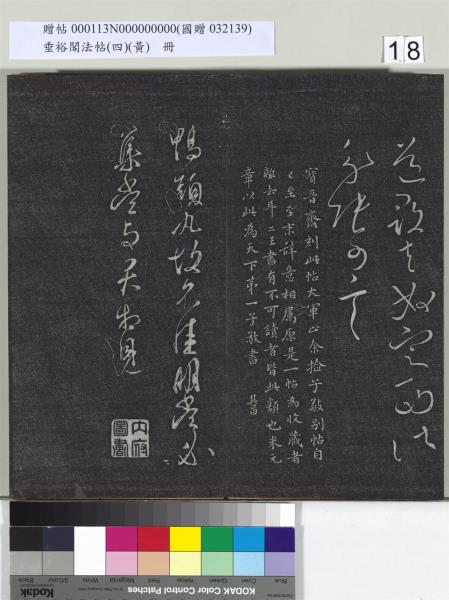 贈帖 000113N000000000(國贈 032139)
垂裕閣法帖(四)(黃) 冊
18
寶晉齋刻此帖大軍止余拾子敬別帖自
已至至末詳意相屬原是一帖為收藏者
離去耳二王書有不可讀者皆此類也米元
章以此為天下第一子敬書 其昌
鴨頭丸故不佳明當必
集當與君相見
內府圖書
KODAK Color Control Patches
Blue Cyan Green Yellow Red Magenta White 3/Color Black